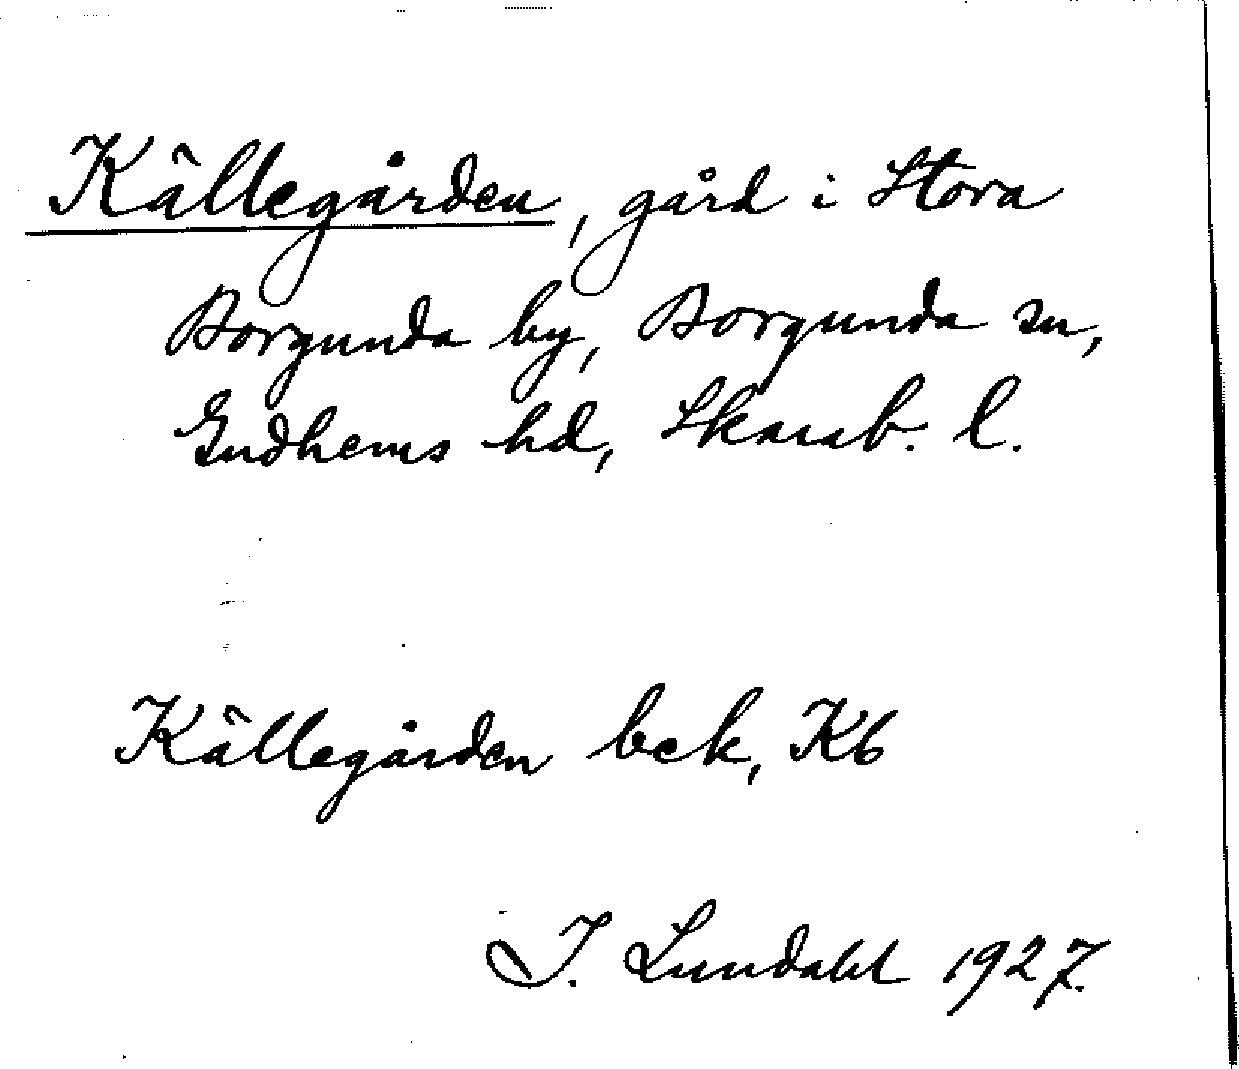 Källegården, gård i Stora
Borgunda by, Borgunda sn,
Gudhems hd, Skarab. l.
Källegården bek, Kb
I. Lundahl 1927.